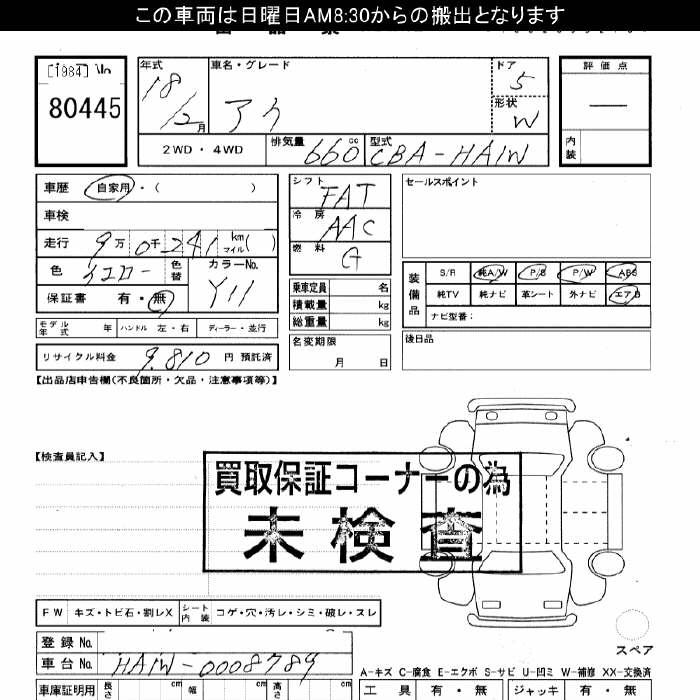 この車両は日曜日AM8:30からの搬出となります
[1984] No
80445
年式 車名・グレード ドア 評価点
18 アイ 5
12月 形状 W
2WD・4WD 排気量 660 cc 型式 CBA-HA1W 内装
車歴 自家用・( )
車検
走行 9万0千241 km マイル( )
色 イエロー 色替 カラーNo. Y11
保証書 有・無
モデル年式 年 ハンドル 左・右 ディーラー・並行
リサイクル料金 9,810 円 預託済
シフト FAT
冷房 AAC
燃料 G
乗車定員 名
積載量 kg
総重量 kg
名変期限
月 日
セールスポイント
装備品 S/R 純A/W P/S P/W ABS
純TV 純ナビ 革シート 外ナビ エアB
ナビ型番:
後日品
【出品店申告欄(不良箇所・欠品・注意事項等)】
【検査員記入】
買取保証コーナーの為
未検査
FW キズ・トビ石・割レX シート内装 コゲ・穴・汚レ・シミ・破レ・スレ
スペア
登録 No.
車台 No. HA1W-0008789
A-キズ C-腐食 E-エクボ S-サビ U-凹ミ W-補修 XX-交換済
車庫証明用 長さ cm 幅 cm 高さ cm 工具 有・無 ジャッキ 有・無